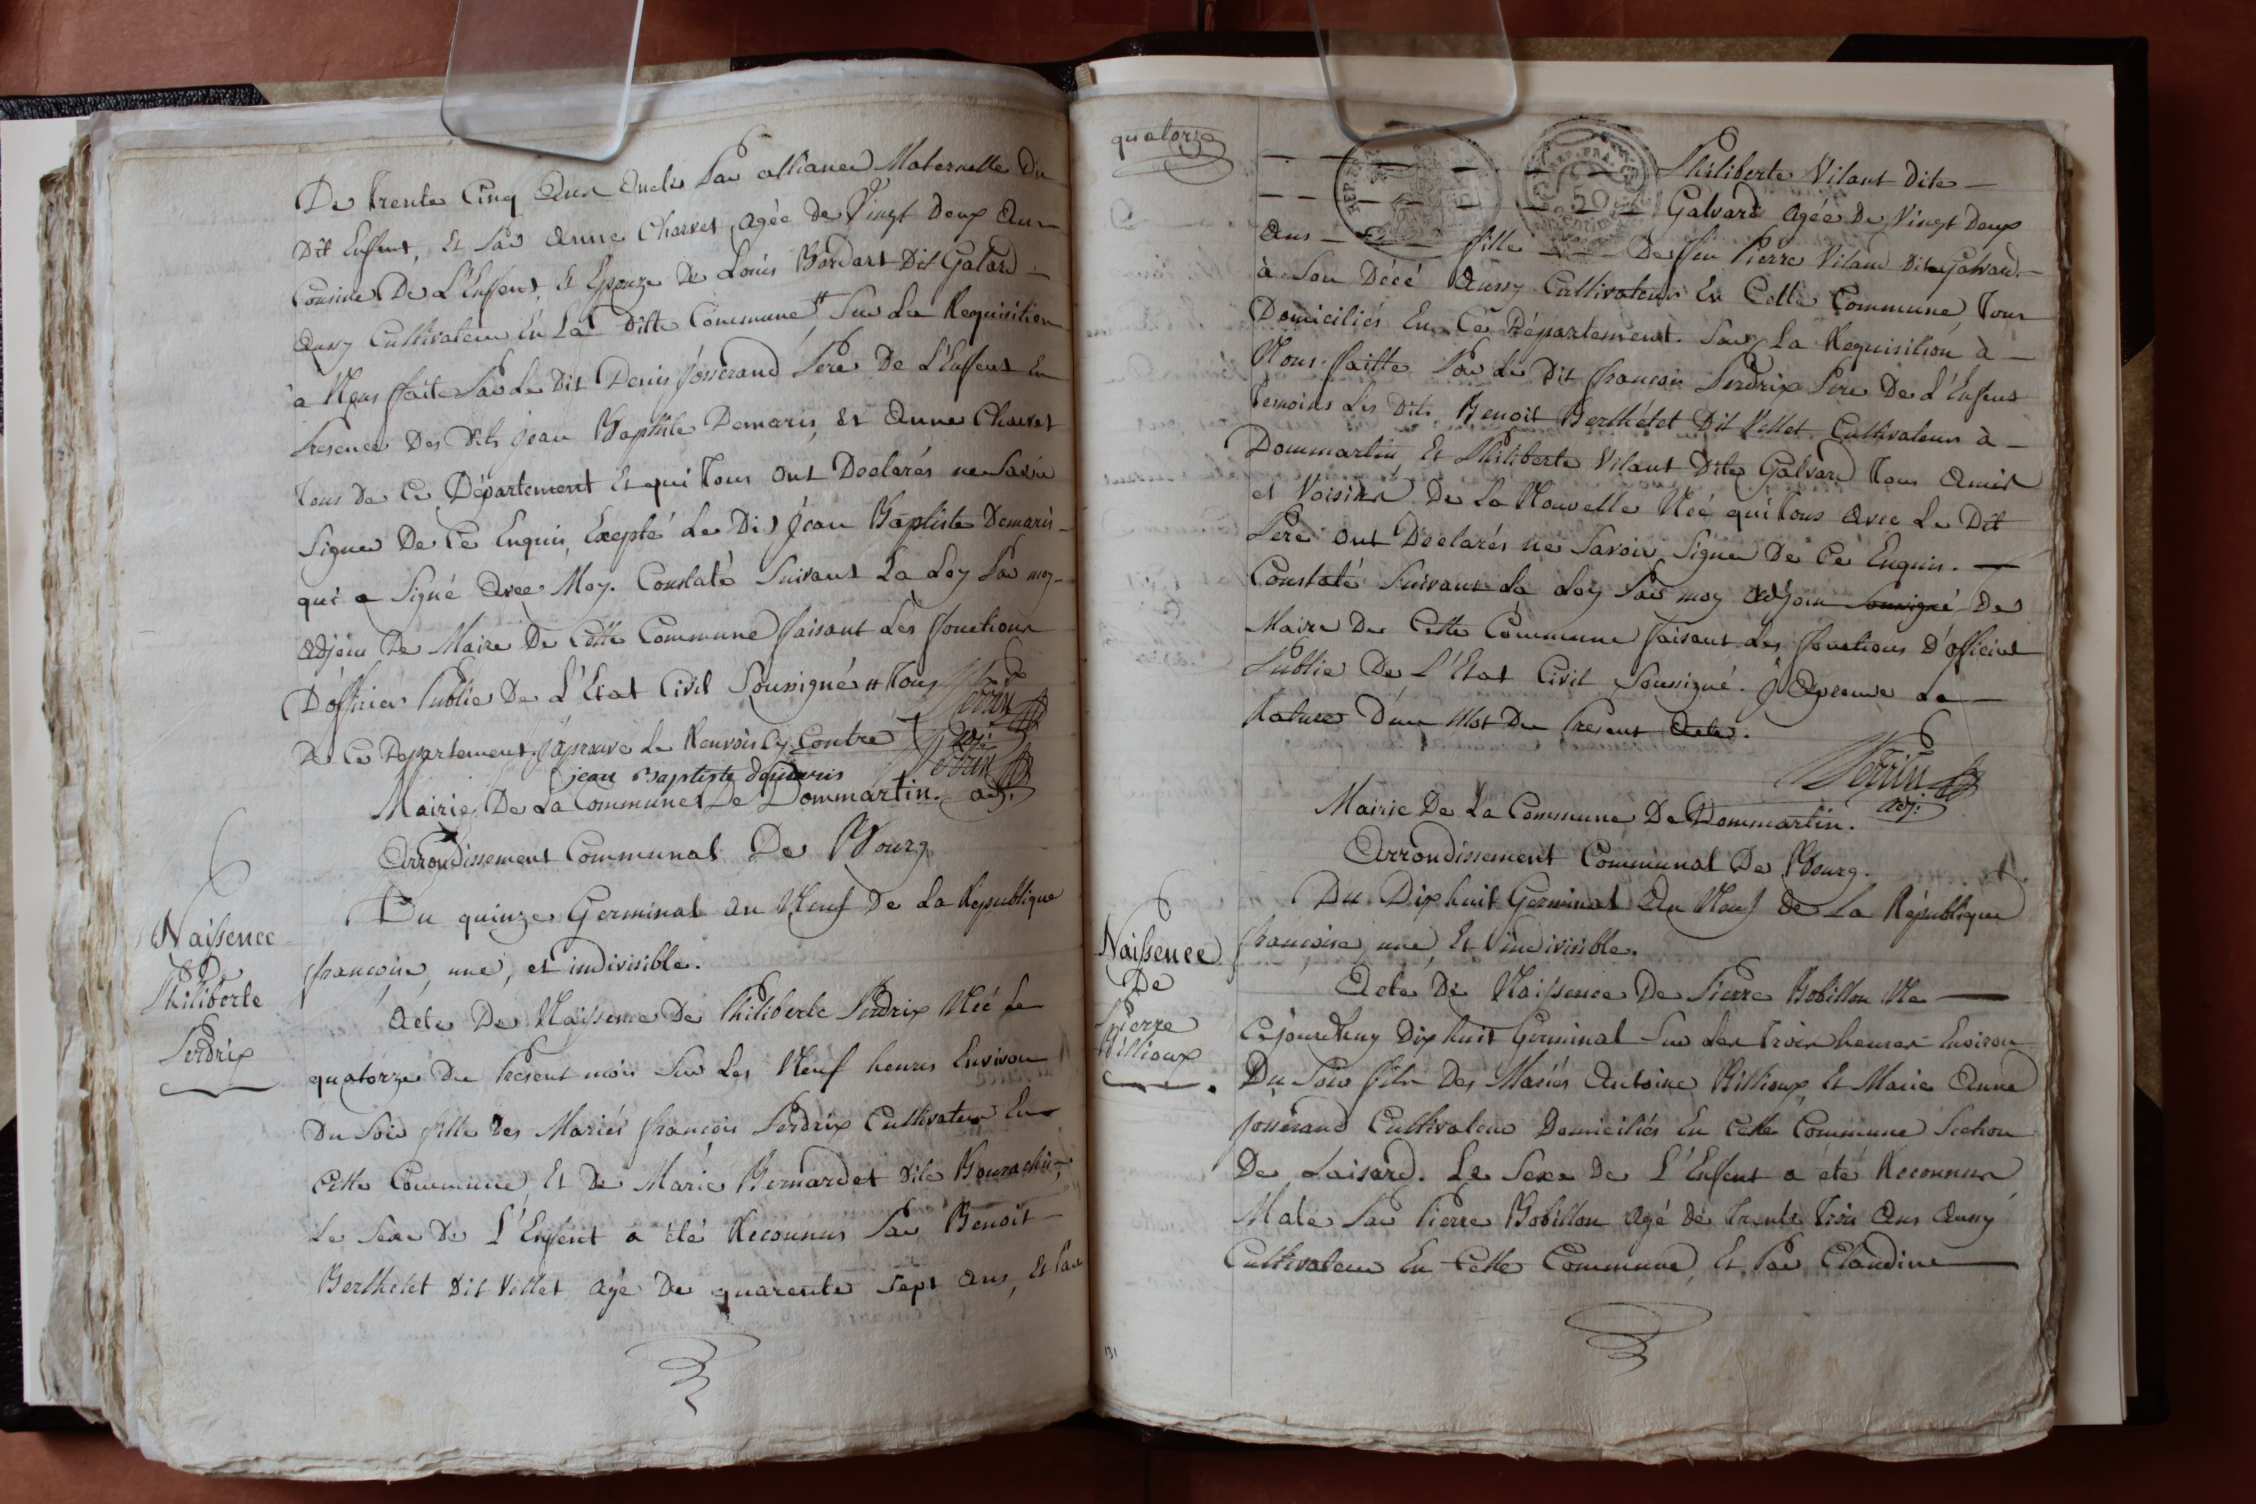 De trente Cinq Ans Oncle Par alliance Maternelle Du
Dit Enffent, Et Par Anne Charvet agée De Vingt Deux Ans
Cousine De L'Enffent, Et Epouze De Louis Bordart Dit Galard
Aussy Cultivateur En La Ditte Commune # Sur La Requisition
a Nous faite Par Le Dit Denis Josserand Pere De L'Enffent En
Presence Des Dits Jean Baptiste Demaris, Et Anne Charvet
Tous De Ce Département Et qui Tous Ont Declarés ne Savoir
Signer De Ce Enquis, Exepté Le Dit Jean Baptiste Demaris
qui a Signé Avec Moy. Constaté Suivant La Loy Par moy
Adjoin De Maire De Cette Commune faisant Les fonctions
D'officier Public De L'Etat Civil Soussigné # Tous
De Ce Departement. J'aprouve Le Renvois Cy Contre
Perrin adj:
jean Baptiste demaris
Perrin adj:
Mairie De La Commune De Dommartin.
Arrondissement Communal De Bourg
Du quinze Germinal an Neuf De La Republique
françoise, une, et indivisible.
Naissence
De
Philiberte
Perdrix
Acte De Naissence De Philiberte Perdrix Née Le
quatorze Du Present mois Sur Les Neuf heures Environ
Du Soir fille Des Mariés françois Perdrix Cultivateur En
Cette Commune, Et De Marie Bernardet Dite
Le Sexe De L'Enfent a été Reconnus Par Benoit
Berthelet Dit Vellet agé De quarente Sept Ans, Et Par
quatorze
REP. FRA.
50
Philiberte Vilant Dite
Galvard agée De Vingt Deux
Ans fille De feu Pierre Viland Dit Galvard
à Son Décé Aussy Cultivateur En Cette Commune, Tous
Domiciliés En Ce Département. Sur La Requisition à
Nous faitte Par Le Dit françois Perdrix Pere De L'Enfent
Temoins Les Dits Benoit Berthélet Dit Vellet Cultivateur à
Dommartin, Et Philiberte Vilant Dite Galvard Tous Amis
et Voisins De La Nouvelle Née qui Tous Avec Le Dit
Pere Ont Declarés ne Savoir Signer De Ce Enquis.
Constaté Suivant La Loy Par moy Adjoin Soussigné De
Maire De Cette Commune faisant Les fonctions D'officier
Public De L'Etat Civil Soussigné. J'Aprouve La
Rature D'un Mot Du Present Acte.
Perrin
adj:
Mairie De La Commune De Dommartin.
Arrondissement Communal De Bourg.
Du Dix huit Germinal An Neuf De La République
françoise, une, Et indivisible.
Naissence
De
Pierre
Billioux
Acte De Naissence De Pierre Bobillon Né
Cejourdhuy Dix huit Germinal Sur Les Trois heures Environ
Du Soir fils Des Mariés Antoine Billioux, Et Marie Anne
Josserand Cultivateur Domiciliés En Cette Commune Section
De Laisard. Le Sexe De L'Enfent a été Reconnus
Male Par Pierre Bobillon agé De trente Trois Ans Aussy
Cultivateur En Cette Commune, Et Par Claudine
131